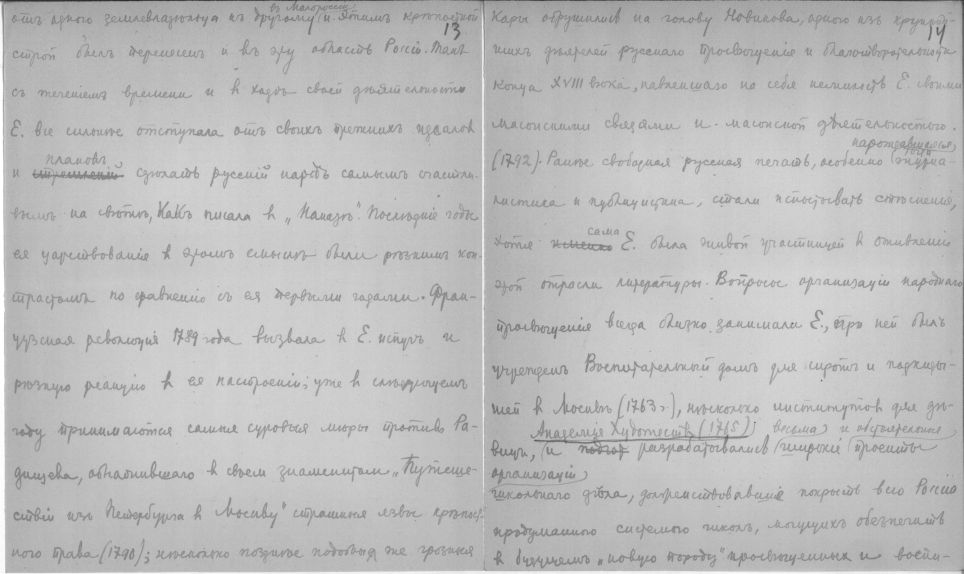 13
въ Малороссіи
отъ одного землевладѣльца къ другому, и этимъ крѣпостной
строй былъ перенесенъ и въ эту область Россіи. Такъ
съ теченіемъ времени и в ходѣ своей дѣятельности
Е. все сильнѣе отступала отъ своихъ прежнихъ идеаловъ
плановъ
и сдѣлать русскій народъ самымъ счастли-
вымъ на свѣтѣ, какъ писала в „Наказѣ". Послѣдніе годы
ея царствованія в этомъ смыслѣ были рѣзкимъ кон-
трастомъ по сравненію съ ея первыми годами. Фран-
цузская революція 1789 года вызвала в Е. испугъ и
рѣзкую реакцію в ея настроеніи; уже в слѣдующемъ
году принимаются самыя суровыя мѣры противъ Ра-
дищева, обнажившаго в своем знаменитом „Путеше-
ствіи изъ Петербурга в Москву" страшныя язвы крѣпост-
ного права (1790); нѣсколько позднѣе подобныя же грозныя
14
кары обрушились на голову Новикова, одного изъ крупнѣй-
шихъ дѣятелей русскаго просвѣщенія и благотворительности
конца XVIII вѣка, навлекшаго на себя немилость Е. своими
масонскими связями и масонской дѣятельностью.
нарождавшаяся,
(1792). Ранѣе свободная русская печать, особенно журна-
листика и публицистика, стали испытывать стѣсненія,
сама
хотя Е. была живой участницей в оживленіи
этой отрасли литературы. Вопросы организаціи народнаго
просвѣщенія всегда близко занимали Е., при ней былъ
учрежденъ Воспитательный домъ для сиротъ и подкиды-
шей в Москвѣ (1763 г), нѣсколько институтовъ для дѣ-
Академія Художествъ (1765); весьма и обстоятельные
вицъ, и разрабатывались широкіе проекты
организаціи
школьнаго дѣла, долженствовавшіе покрыть всю Россію
продуманною системою школъ, могущихъ обезпечить
в будущемъ „новую породу" просвѣщенныхъ и воспи-